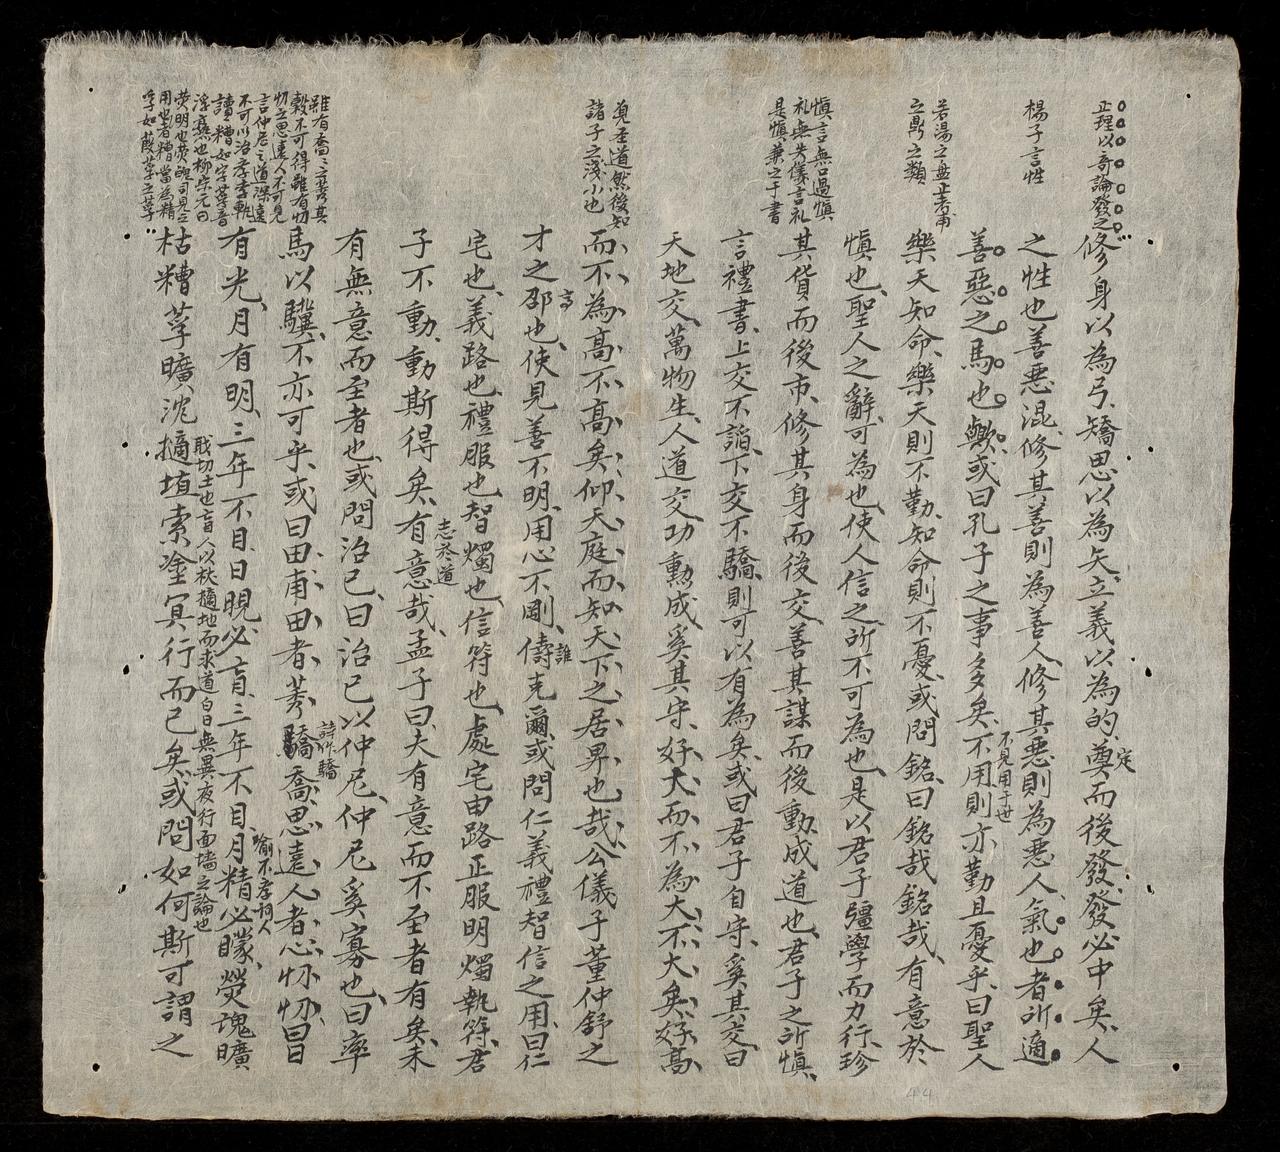 正理以奇論發之
修身以為弓、矯思以為矢、立義以為的、奠而後發、發必中矣、人
定
楊子言性
之性也善惡混、修其善則為善人、修其惡則為惡人、氣也者所適
善惡之馬也歟、或曰孔子之事多矣、不用則亦勤且憂乎、曰聖人
不見用于世
若湯之盤正考甫
之鼎之類
樂天知命、樂天則不勤、知命則不憂、或問銘、曰銘哉銘哉、有意於
慎也、聖人之辭、可為也、使人信之、所不可為也、是以君子彊學而力行、珍
慎言無口過慎
礼無失儀言礼
是慎兼之于書
其貨而後市、修其身而後交、善其謀而後動、成道也、君子之所慎、
言禮書、上交不諂、下交不驕、則可以有為矣、或曰君子自守、奚其交、曰
天地交、萬物生、人道交、功勳成、奚其守、好大而不為大、不大矣、好高
見圣道然後知
諸子之淺小也
而不為高、不高矣、仰天庭而知天下之居卑也哉、公儀子董仲舒之
才之邵也、使見善不明、用心不剛、儔克爾、或問仁義禮智信之用、曰仁
高
誰
宅也、義路也、禮服也、智燭也、信符也、處宅由路、正服明燭、執符、君
子不動、動斯得矣、有意哉、孟子曰、夫有意而不至者有矣、未
志於道
有無意而至者也、或問治己、曰治己以仲尼、仲尼奚寡也、曰率
雖有喬喬之莠其
穀不可得雖有忉
忉之思遠人不可見
言仲尼之道深遠
不可以治
馬以驥、不亦可乎、或曰田甫田者、莠驕喬、思遠人者、心忉忉、曰日
詩作驕
有光、月有明、三年不目日、視必盲、三年不目月、精必矇、熒魂曠
喻不孝詞人
讀糟如字莩音
浮熹也柳宗元曰
熒明也熒魄司見之
用也者糟當為精
莩如葭莩之莩
枯糟莩曠沈擿埴索塗、冥行而已矣、或問如何斯可謂之
埴切土也盲人以杖擿地而求道白日無異夜行面墙之論也
44